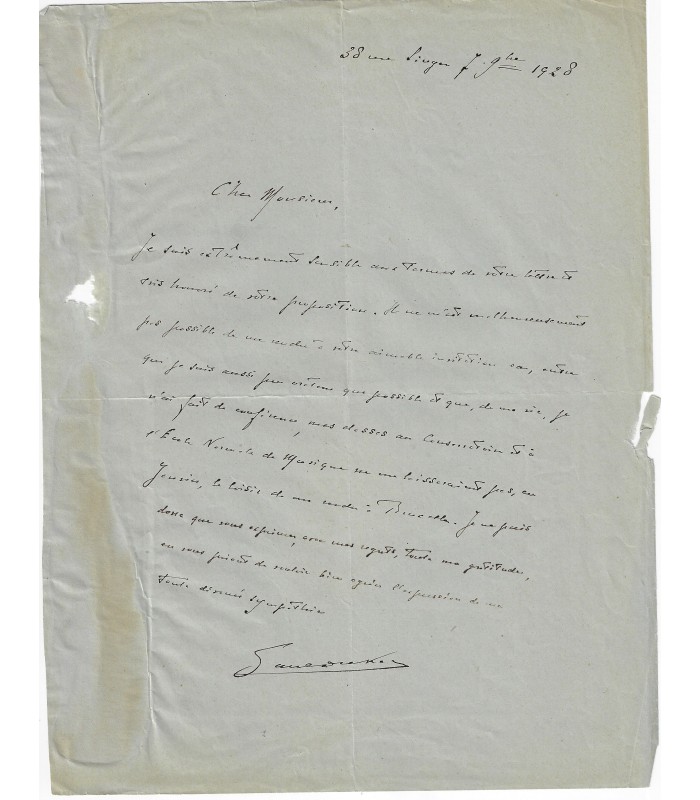 38 rue Singer 7 9bre 1928
Cher Monsieur,
Je suis extrêmement sensible aux termes de votre lettre et
très honoré de votre proposition. Il ne m'est malheureusement
pas possible de me rendre à votre aimable invitation car, outre
que je suis aussi peu orateur que possible et que, de ma vie, je
n'ai fait de conférence, mes classes au Conservatoire et à
l'École Normale de Musique ne me laisseraient pas, en
Janvier, le loisir de me rendre à Bruxelles. Je ne puis
donc que vous exprimer, avec mes regrets, toute ma gratitude,
en vous priant de vouloir bien agréer l'expression de ma
toute dévouée sympathie
Paul Dukas